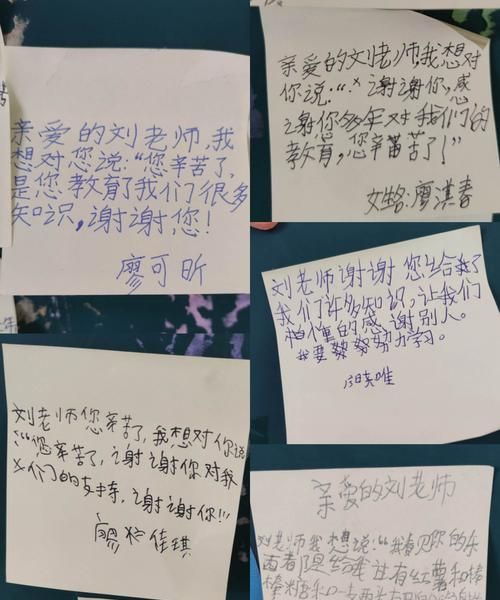 亲爱的刘老师,我
想对您说:“您辛苦了,
是您教育了我们很多
知识,谢谢您!
廖可昕
亲爱的刘老师,我想对
你说:“谢谢你,感
谢您多年对我们的
教育,您辛苦了!”
廖淇春
刘老师谢谢 您给了
我们许多知识,让我们
懂的感谢别人。
我要努力学习。
刘老师您辛苦了,我想对你说
:“您辛苦了,谢谢你对我
们的支持,谢谢你!!”
廖 佳琪
亲爱的刘老师
刘老师我想说:“我看见你的东
西都是给我 过有红薯和棒
棒糖和